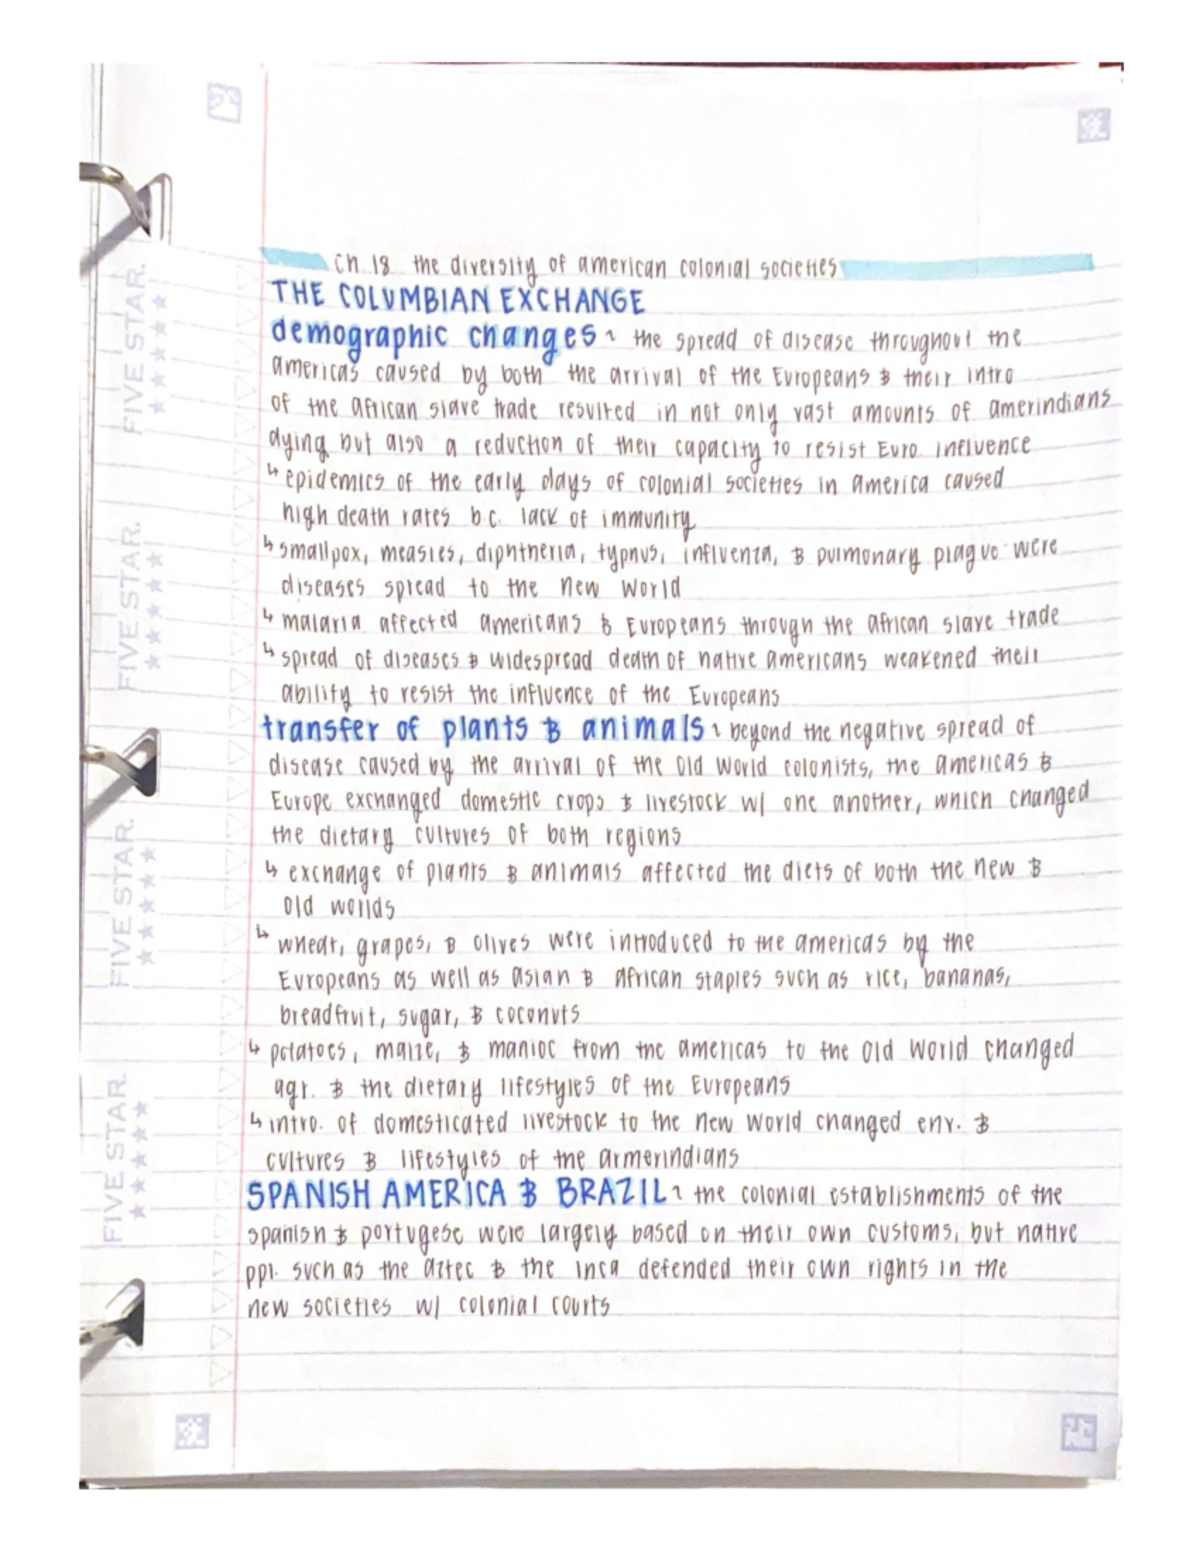 ch 18 the diversity of american colonial societies
THE COLUMBIAN EXCHANGE
demographic changes ~ the spread of disease throughout the
americas caused by both the arrival of the Europeans & their intro
of the african slave trade resulted in not only vast amounts of amerindians
dying but also a reduction of their capacity to resist Euro. influence
↳ epidemics of the early days of colonial societies in america caused
high death rates b.c. lack of immunity
↳ smallpox, measles, diphtheria, typhus, influenza, & pulmonary plague were
diseases spread to the new world
↳ malaria affected americans & Europeans through the african slave trade
↳ spread of diseases & widespread death of native americans weakened their
ability to resist the influence of the Europeans
transfer of plants & animals ~ beyond the negative spread of
disease caused by the arrival of the old world colonists, the americas &
Europe exchanged domestic crops & livestock w/ one another, which changed
the dietary cultures of both regions
↳ exchange of plants & animals affected the diets of both the new &
old worlds
↳ wheat, grapes, & olives were introduced to the americas by the
Europeans as well as asian & african staples such as rice, bananas,
breadfruit, sugar, & coconuts
↳ potatoes, maize, & manioc from the americas to the old world changed
agr. & the dietary lifestyles of the Europeans
↳ intro. of domesticated livestock to the new world changed env. &
cultures & lifestyles of the armerindians
SPANISH AMERICA & BRAZIL ~ the colonial establishments of the
spanish & portugese were largely based on their own customs, but native
ppl. such as the aztec & the inca defended their own rights in the
new societies w/ colonial courts
FIVE STAR.
FIVE STAR.
FIVE STAR.
FIVE STAR.